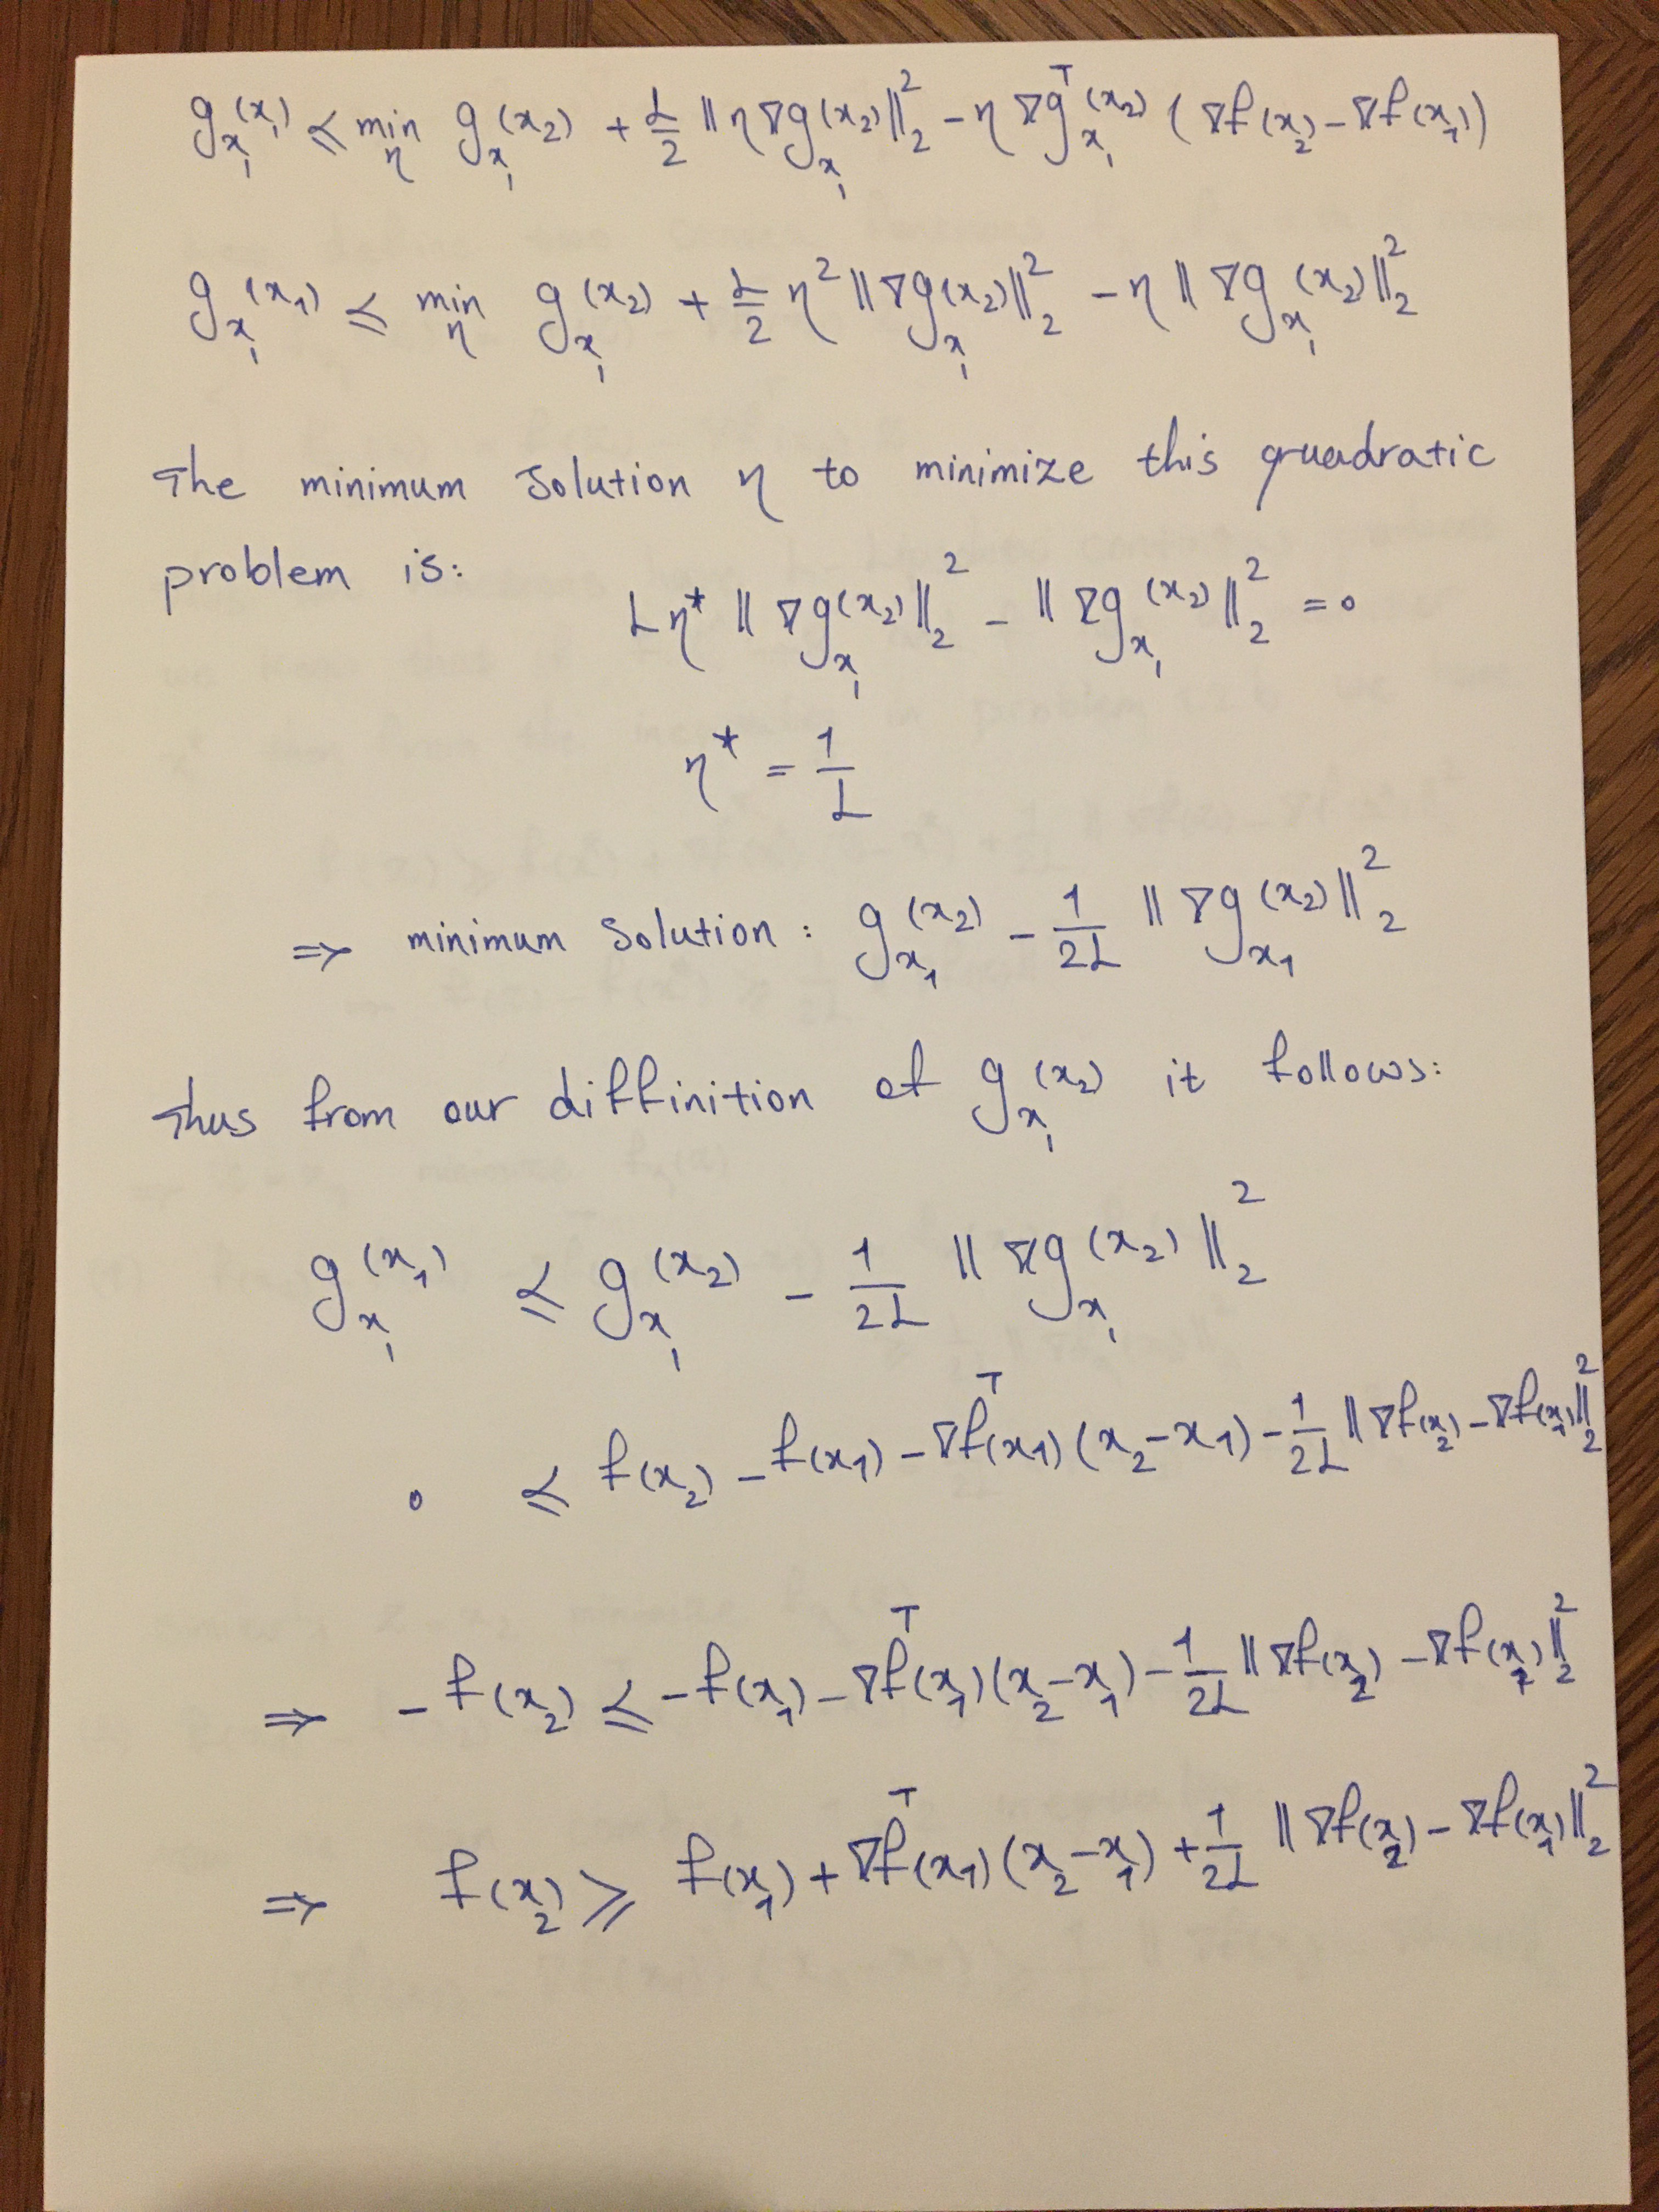 g_{x_1}(x_1) ≤ min_η g_{x_1}(x_2) + L/2 ‖η∇g_{x_1}(x_2)‖_2^2 - η∇g_{x_1}^T(x_2) (∇f(x_2) - ∇f(x_1))
g_{x_1}(x_1) ≤ min_η g_{x_1}(x_2) + L/2 η^2 ‖∇g_{x_1}(x_2)‖_2^2 - η‖∇g_{x_1}(x_2)‖_2^2
The minimum solution η to minimize this quadratic
problem is:
Lη* ‖∇g_{x_1}(x_2)‖_2^2 - ‖∇g_{x_1}(x_2)‖_2^2 = 0
η* = 1/L
⇒ minimum solution: g_{x_1}(x_2) - 1/2L ‖∇g_{x_1}(x_2)‖_2^2
Thus from our diffinition of g_{x_1}(x_2) it follows:
g_{x_1}(x_1) ≤ g_{x_1}(x_2) - 1/2L ‖∇g_{x_1}(x_2)‖_2^2
0 ≤ f(x_2) - f(x_1) - ∇f^T(x_1)(x_2 - x_1) - 1/2L ‖∇f(x_2) - ∇f(x_1)‖_2^2
⇒ -f(x_2) ≤ -f(x_1) - ∇f^T(x_1)(x_2 - x_1) - 1/2L ‖∇f(x_2) - ∇f(x_1)‖_2^2
⇒ f(x_2) ≥ f(x_1) + ∇f^T(x_1)(x_2 - x_1) + 1/2L ‖∇f(x_2) - ∇f(x_1)‖_2^2